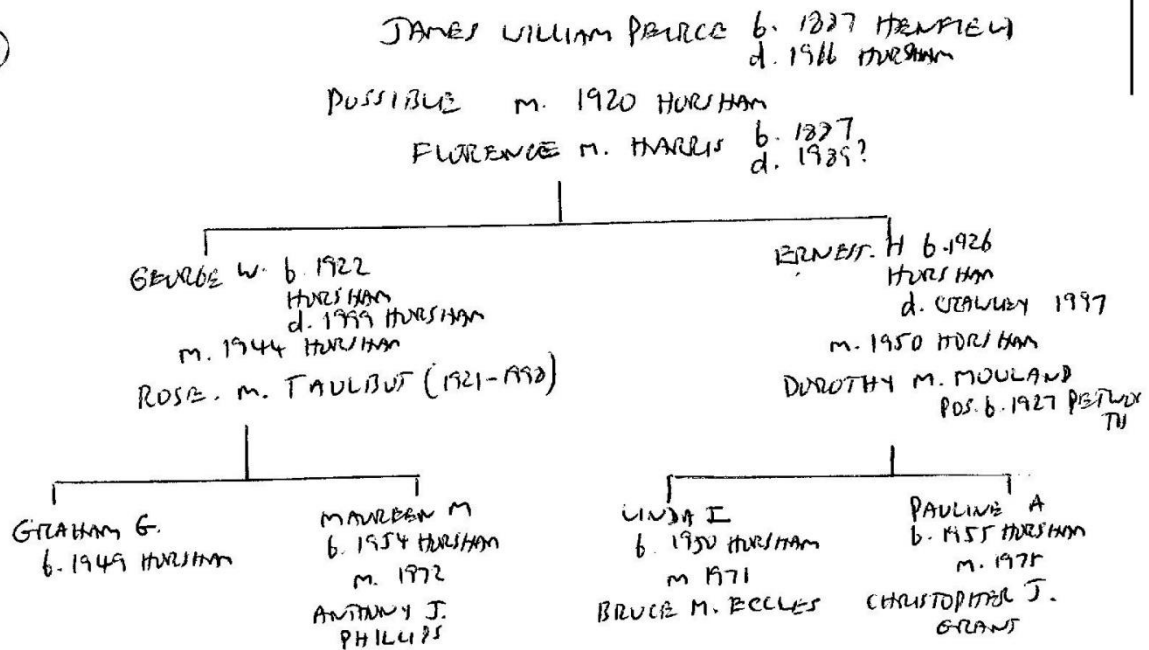 JAMES WILLIAM PEIRCE b. 1887 HENFIELD
d. 1966 HORSHAM
POSSIBLE m. 1920 HORSHAM
FLORENCE M. HARRIS b. 1887
d. 1989?
GEORGE W. b. 1922
HORSHAM
d. 1999 HORSHAM
m. 1944 HORSHAM
ROSE. M. TAULBUT (1921-1998)
ERNEST. H b. 1926
HORSHAM
d. CRAWLEY 1997
m. 1950 HORSHAM
DOROTHY M. MOULAND
POS. b. 1927 PETWOR
TH
GRAHAM G.
b. 1949 HORSHAM
MAUREEN M
b. 1954 HORSHAM
m. 1972
ANTHONY J.
PHILLIPS
LINDA I
b. 1950 HORSHAM
m 1971
BRUCE M. ECCLES
PAULINE A
b. 1955 HORSHAM
m. 1975
CHRISTOPHER J.
GRANT